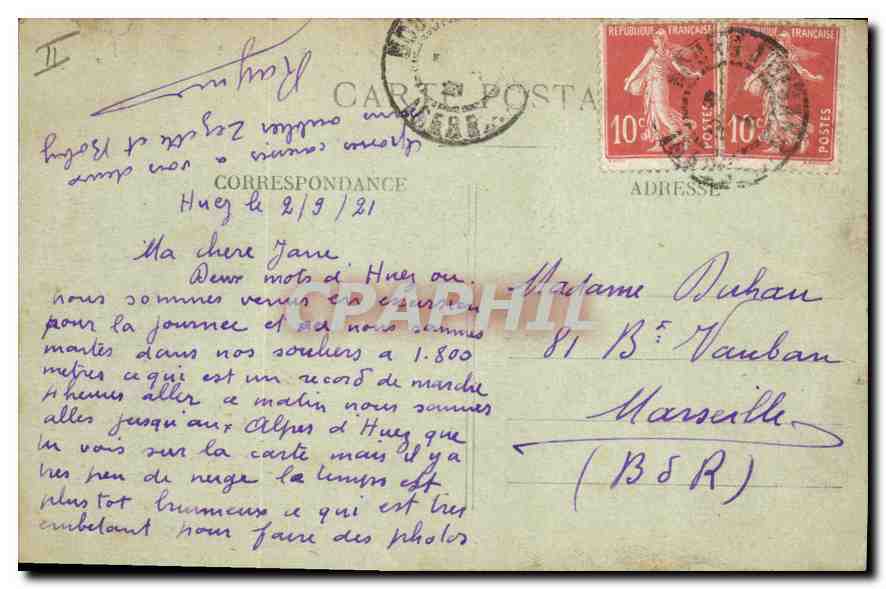 II
CARTE POSTA
REPUBLIQUE FRANÇAISE
10c POSTES
REPUBLIQUE FRANÇAISE
10c POSTES
CORRESPONDANCE
ADRESSE
Huez le 2/9/21
Ma chere Jane
Deux mots d'Huez ou
nous sommes venus en excursion
pour la journee et où nous sommes
montés dans nos souliers a 1.800
metres ce qui est un record de marche
4 heures aller ce matin nous sommes
alles jusqu'aux Alpes d'Huez que
tu vois sur la carte mais il y a
tres peu de neige le temps est
plus tot brumeux ce qui est tres
embetant pour faire des photos
a vous deux
sans oublier Zezette et Boby
Raym
Madame Duhau
81 Bd Vauban
Marseille
(B d R)
CPAPHIL